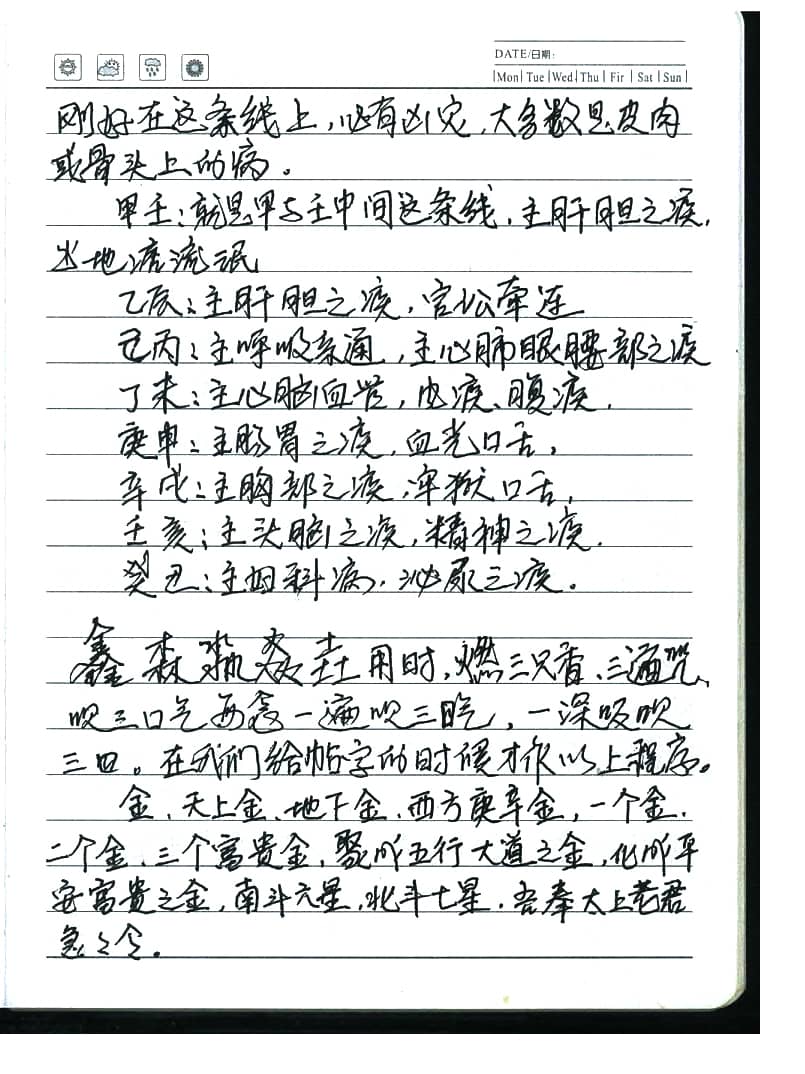 DATE/日期:
Mon Tue Wed Thu Fir Sat Sun
刚好在这条线上,必有凶灾,大多数是皮肉
或骨头上的病。
甲壬:就是甲与壬中间这条线,主肝胆之疾,
出地流氓
乙辰:主肝胆之疾,官讼牵连
巳丙:主呼吸系通,主心肺眼腰部之疾
丁未:主心脑血管,皮疾、腹疾.
庚申:主肠胃之疾,血光口舌,
辛戌:主胸部之疾,牢狱口舌,
壬亥:主头脑之疾,精神之疾.
癸丑:主妇科病,泌尿之疾。
鑫森淼焱垚用时,燃三只香、三遍咒、
吹三口气再念一遍吹三口气,一深吸吹
三口。在我们给帖字的时候才作以上程序。
金、天上金、地下金、西方庚辛金,一个金.
二个金、三个富贵金,聚成五行大道之金,化成平
安富贵之金,南斗六星,北斗七星,吾奉太上老君
急々令。